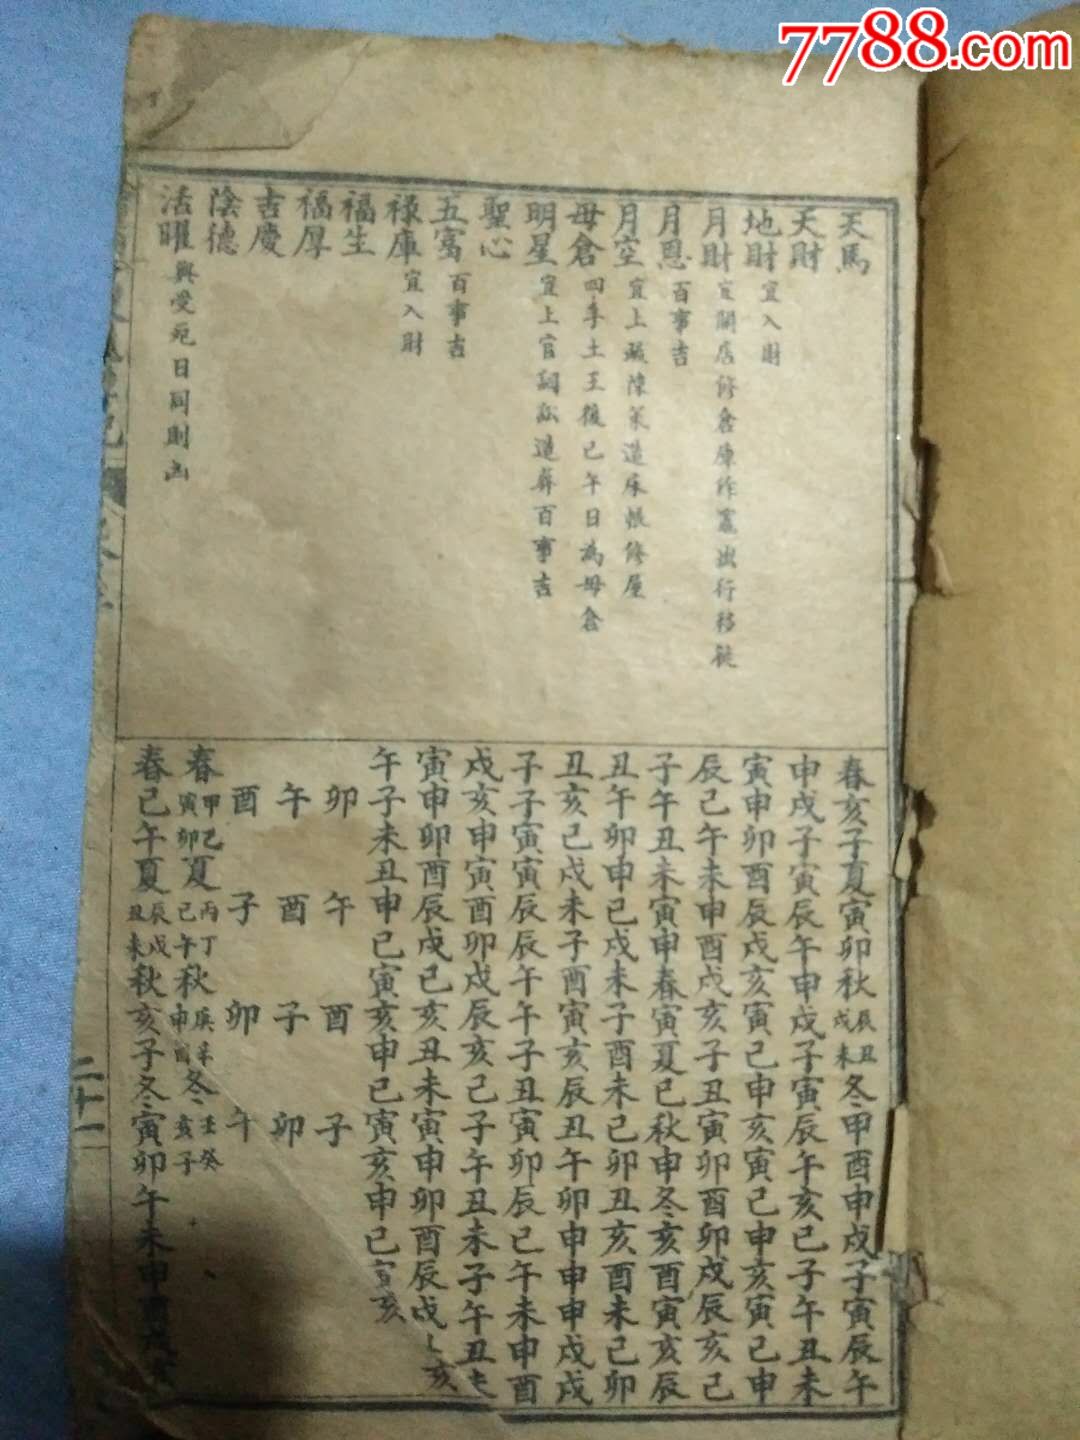 7788.com
天馬
天財
地財 宜入財
月財 宜開店修倉庫作竈出行移徙
月恩 百事吉
月空 宜上 陳策造床帳修屋
母倉 四季土王後巳午日為母倉
明星 宜上官詞訟造葬百事吉
聖心
五富 百事吉
祿庫 宜入財
福生
福厚
吉慶
陰德
活曜 與受死日同則凶
春亥子夏寅卯秋辰丑戌未冬申酉申戌子寅辰午
申戌子寅辰午申戌子寅辰午亥巳子午丑未
寅申卯酉辰戌亥寅巳申亥寅巳申亥寅巳申
辰巳午未申酉戌亥子丑寅卯酉卯戌辰亥巳
子午丑未寅申春寅夏巳秋申冬亥酉寅亥辰
丑午卯申巳戌未子酉未巳卯丑亥酉未巳卯
丑亥巳戌未子酉寅亥辰丑午卯申申申戌戌
子子寅寅辰辰午午子丑寅卯辰巳午未申酉
戌亥申寅酉卯戌辰亥巳子午丑未子午丑未
寅申卯酉辰戌巳亥丑未寅申卯酉辰戌巳亥
午子未丑申巳寅亥申巳寅亥申巳寅亥
卯 午 酉 子
午 酉 子 卯
酉 子 卯 午
春甲乙寅卯夏丙丁巳午秋庚辛申酉冬壬癸亥子
春巳午夏辰戌丑未秋亥子冬寅卯午未申酉戌亥
二十一